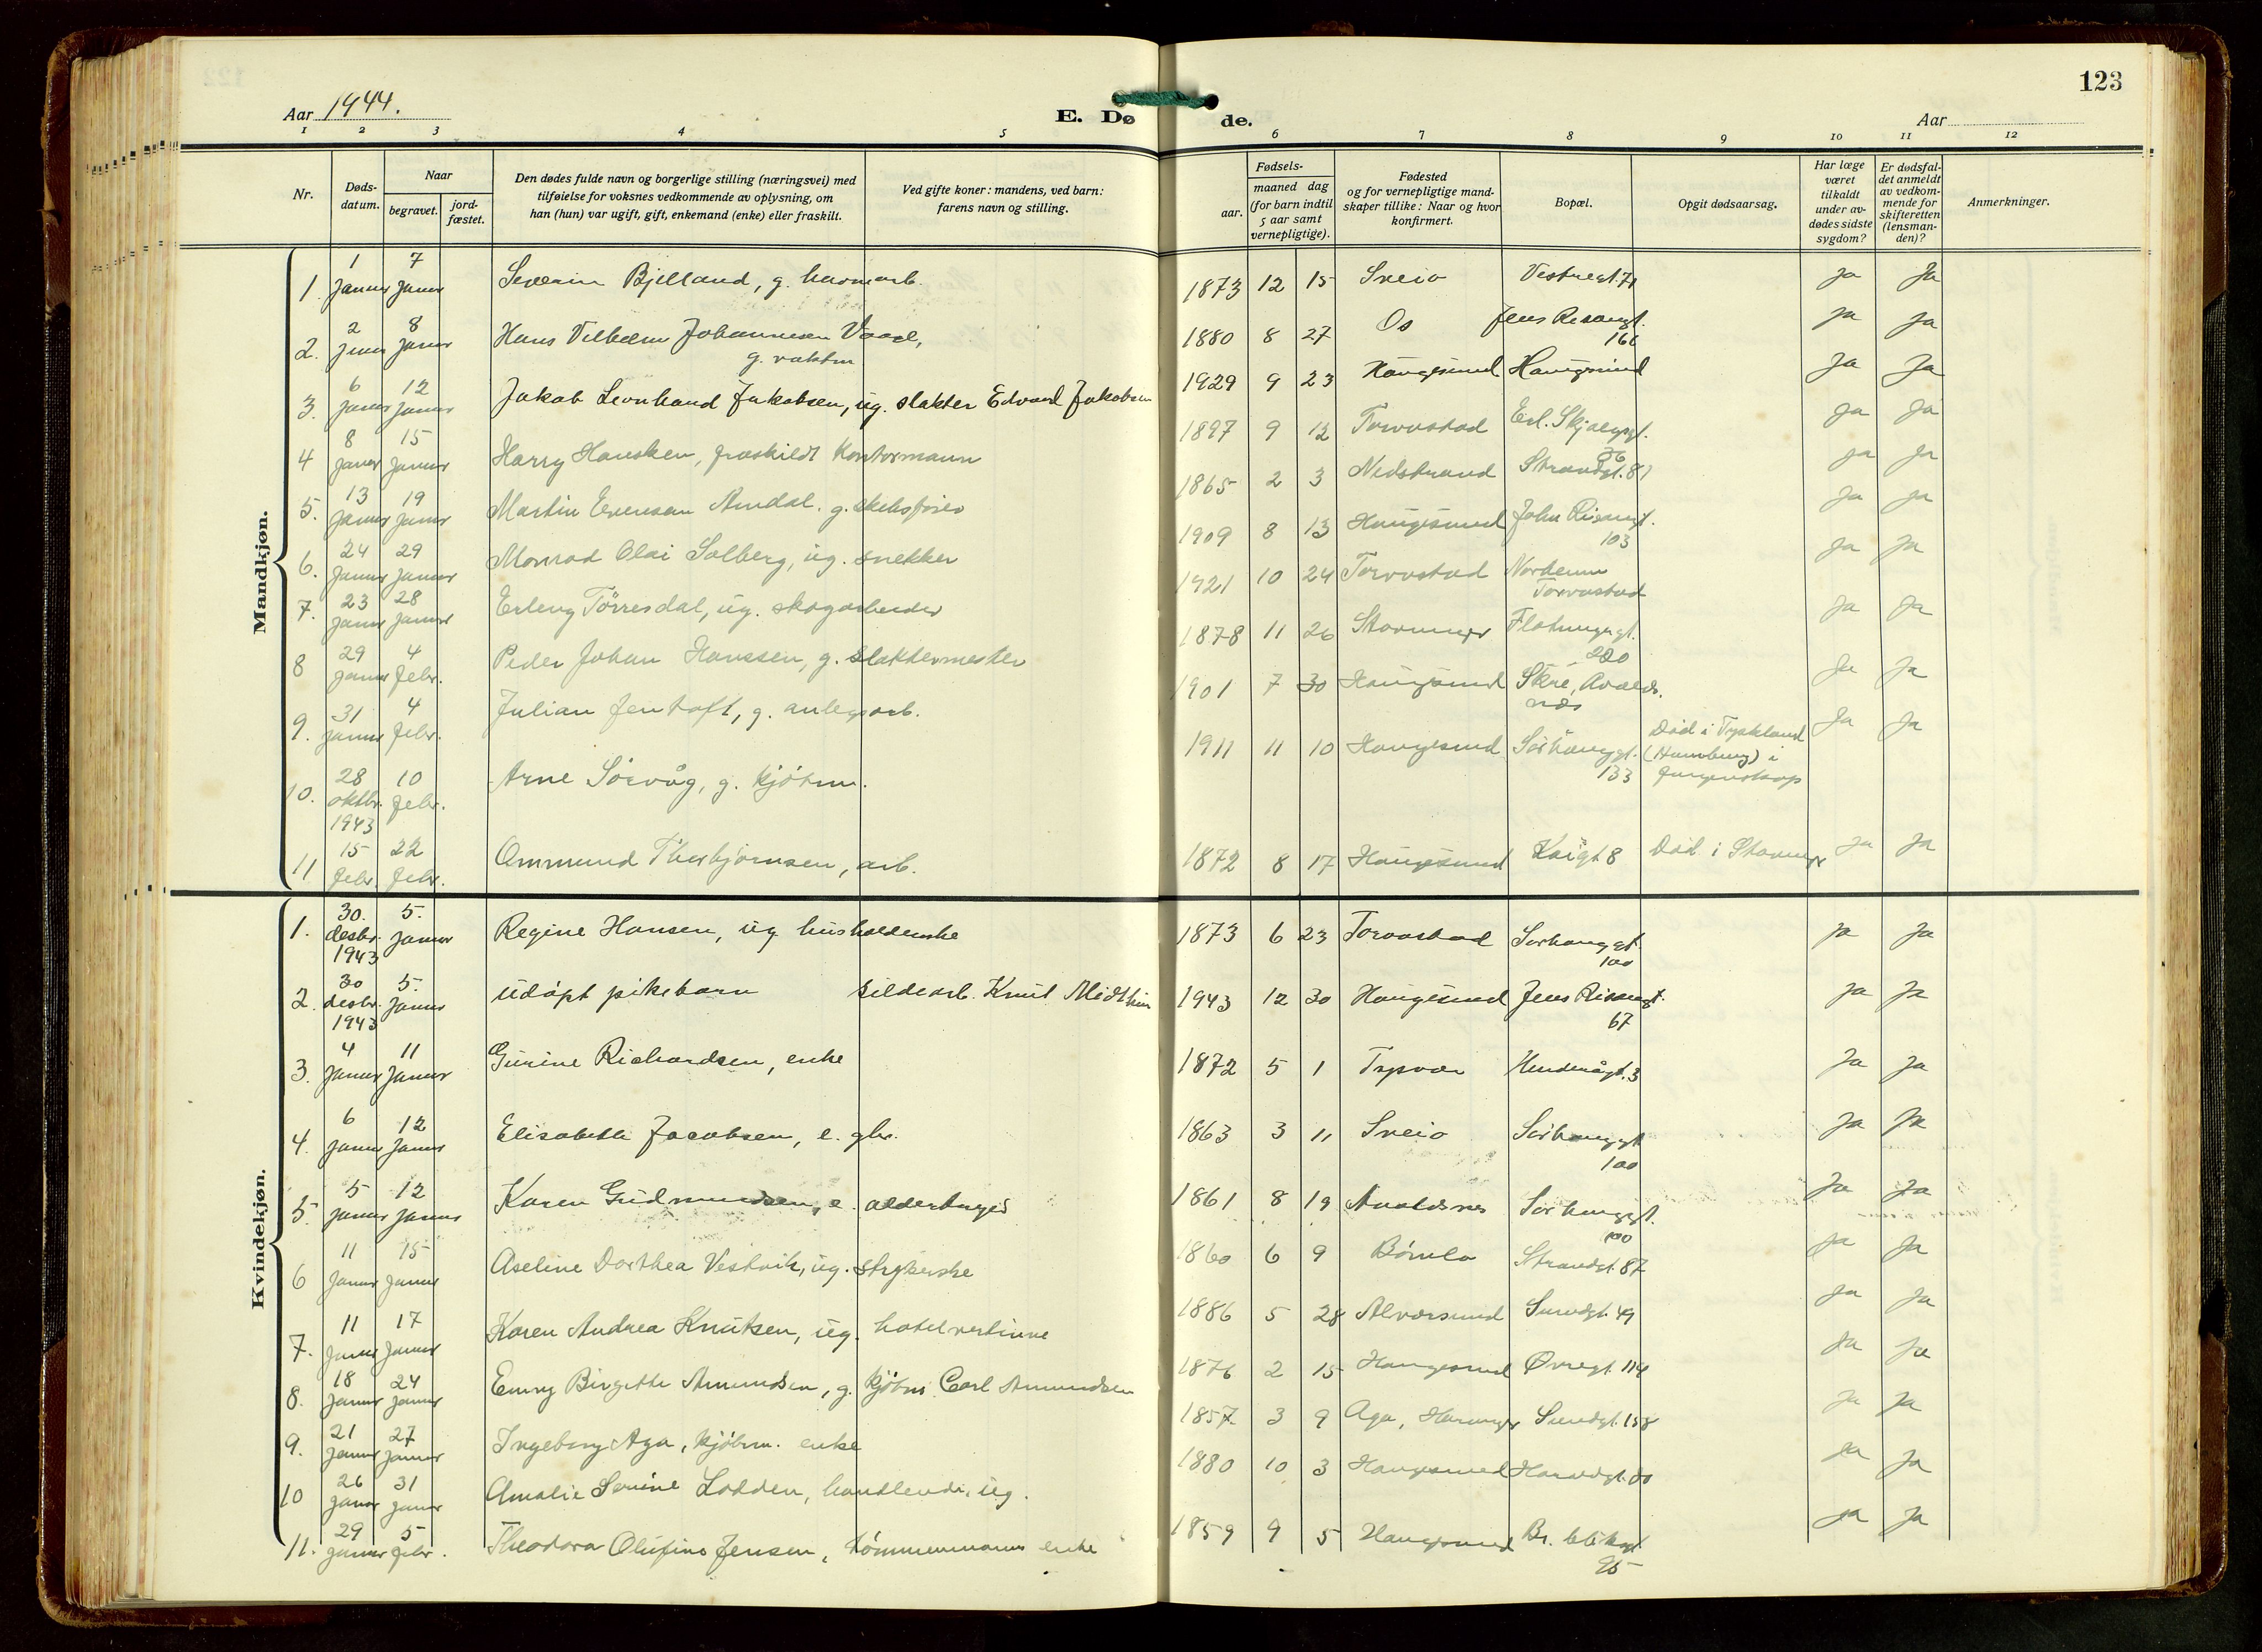 123
Aar 1944.
E. Dø de.
Aar
1 2 3 4 5 6 7 8 9 10 11 12
Nr.
Døds-
datum.
Naar
begravet.
jord-
fæstet.
Den dødes fulde navn og borgerlige stilling (næringsvei) med
tilføielse for voksnes vedkommende av oplysning, om
han (hun) var ugift, gift, enkemand (enke) eller fraskilt.
Ved gifte koner: mandens, ved barn:
farens navn og stilling.
Fødsels-
aar.
maaned dag
(for barn indtil
5 aar samt
vernepligtige).
Fødested
og for vernepligtige mand-
skaper tillike: Naar og hvor
konfirmert.
Bopæl.
Opgit dødsaarsag.
Har læge
været
tilkaldt
under av-
dødes sidste
sygdom?
Er dødsfal-
det anmeldt
av vedkom-
mende for
skifteretten
(lensman-
den)?
Anmerkninger.
Mandkjøn.
1. 1 januar 7 januar Severin Bjelland, g. havnearb. 1873 12 15 Sveio Vestregt. 71 ja Ja
2. 2 januar 8 januar Hans Vilhelm Johannesen Vaage, g. vaktm 1880 8 27 Os Jens Risøengt. 166 ja ja
3. 6 januar 12 januar Jakob Leonhard Jakobsen, ug. slakter Edvard Jakobsen 1929 9 23 Haugesund Haugesund Ja Ja
4 8 januar 15 januar Harry Hansken, fraskildt kontormann 1897 9 12 Torvastad Erl. Skjalgsgt. 36 ja ja
5. 13 januar 19 januar Martin Evensen Amdal. g. skibsfører 1865 2 3 Nedstrand Strandgt. 81 ja ja
6. 24 januar 29 januar Monrad Olai Solberg, ug. snekker 1909 8 13 Haugesund John Risøengt. 103 ja ja
7. 23 januar 28 januar Erling Tørresdal, ug. skogarbeider 1921 10 24 Torvastad Norheim Torvastad ja ja
8 29 januar 4 febr. Peder Johan Hanssen, g. slaktermester 1878 11 26 Stavanger Flotmyrgt. 220 ja ja
9. 31 januar 4 febr. Julian Jentoft, g. anlegsarb. 1901 7 30 Haugesund Skåe, Avalds- nes Ja Ja
10. 28 oktbr. 1943 10 febr. Arne Sørvåg, g. kjøbm. 1911 11 10 Haugesund Sørhauggt. 133 Død i Tyskland (Hamburg) i fangenskap Ja Ja
11 15 febr. 22 febr. Ommund Thorbjørnsen, arb. 1872 8 17 Haugesund Kaigt 8 Død i Stavanger ja ja
Kvindekjøn.
1. 30. desbr. 1943 5. januar Regine Hansen, ug husholderske 1873 6 23 Torvastad Sørhauggt. 100 ja ja
2. 30 desbr. 1943 5. januar udøpt pikebarn sildearb. Knut 1943 12 30 Haugesund Jens Risøengt. 67 ja ja
3. 4 januar 11 januar Gurine Richardsen, enke 1872 5 1 Tysvær 3 Ja ja
4. 6 januar 12 januar Elisabeth Jacobsen, e. glv. 1863 3 11 Sveio Sørhauggt 100 Ja ja
5. 5 januar 12 januar Karen Gudmundsen, e. alderstrygd 1861 8 19 Avaldsnes Sørhauggt. 100 Ja ja
6 11 januar 15 januar Aseline Dorthea Vestvik, ug. strykerske 1860 6 9 Bømlo Strandgt. 87 ja ja
7. 11 januar 17 januar Karen Andrea Knutsen, ug. hotelvertinne 1886 5 28 Alversund Sundgt. 49 ja ja
8. 18 januar 24 januar Emmy Birgitte Amundsen, g. kjøbm. Carl Amundsen 1876 2 15 Haugesund Øvregt. 114 ja ja
9. 21 januar 27 januar Ingeborg Aga, kjøbm. enke 1857 3 9 Aga, Hardanger Sundgt. 158 ja ja
10 26 januar 31 januar Amalie Serine Lodden, handlende, ug. 1880 10 3 Haugesund Haraldsgt. 80 ja ja
11. 29 januar 5 febr. Theodora Olufine Jensen, tømmermanns enke 1859 9 5 Haugesund 95 ja Ja